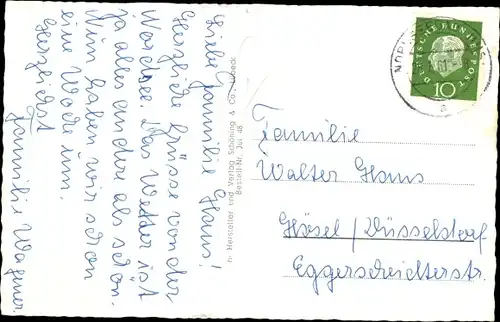 Liebe Familie Haus!
Herzliche Grüsse von der
Nordsee. Das Wetter ist
ja alles andere als schön.
Nun haben wir schon
eine Woche um.
Herzlichst
Familie Wagener
Hersteller und Verlag Schöning & Co., Lübeck
Bestell-Nr. Jui 48
DEUTSCHE BUNDESPOST
10
a
Familie
Walter Haus
Hösel / Düsseldorf
Eggerscheidterstr.